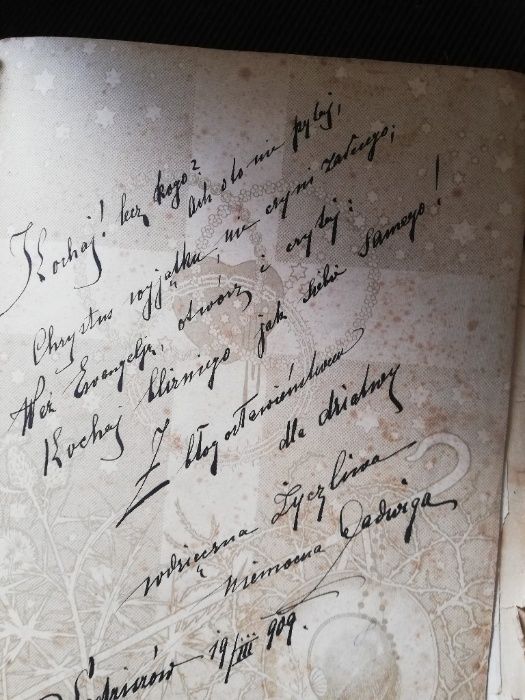 Kochaj! lecz kogo? Ach o to nie pytaj,
Chrystus wyjątku nie czyni żadnego;
Weź Ewangelję, otwórz i czytaj:
Kochaj bliźniego jak siebie samego!
Z błogosławieństwem
dla dziatwy
wdzięczna Życzliwa
niemocna Jadwiga
19/III 909.